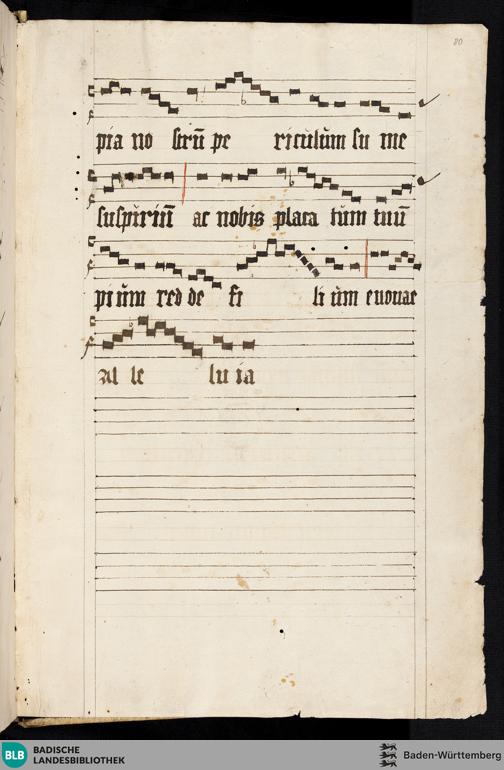 80
pia no strū pe riculum su me
suspiriū ac nobis placa tum tuū
pi um red de fi li um euouae
al le lu ia
BLB BADISCHE LANDESBIBLIOTHEK
Baden-Württemberg